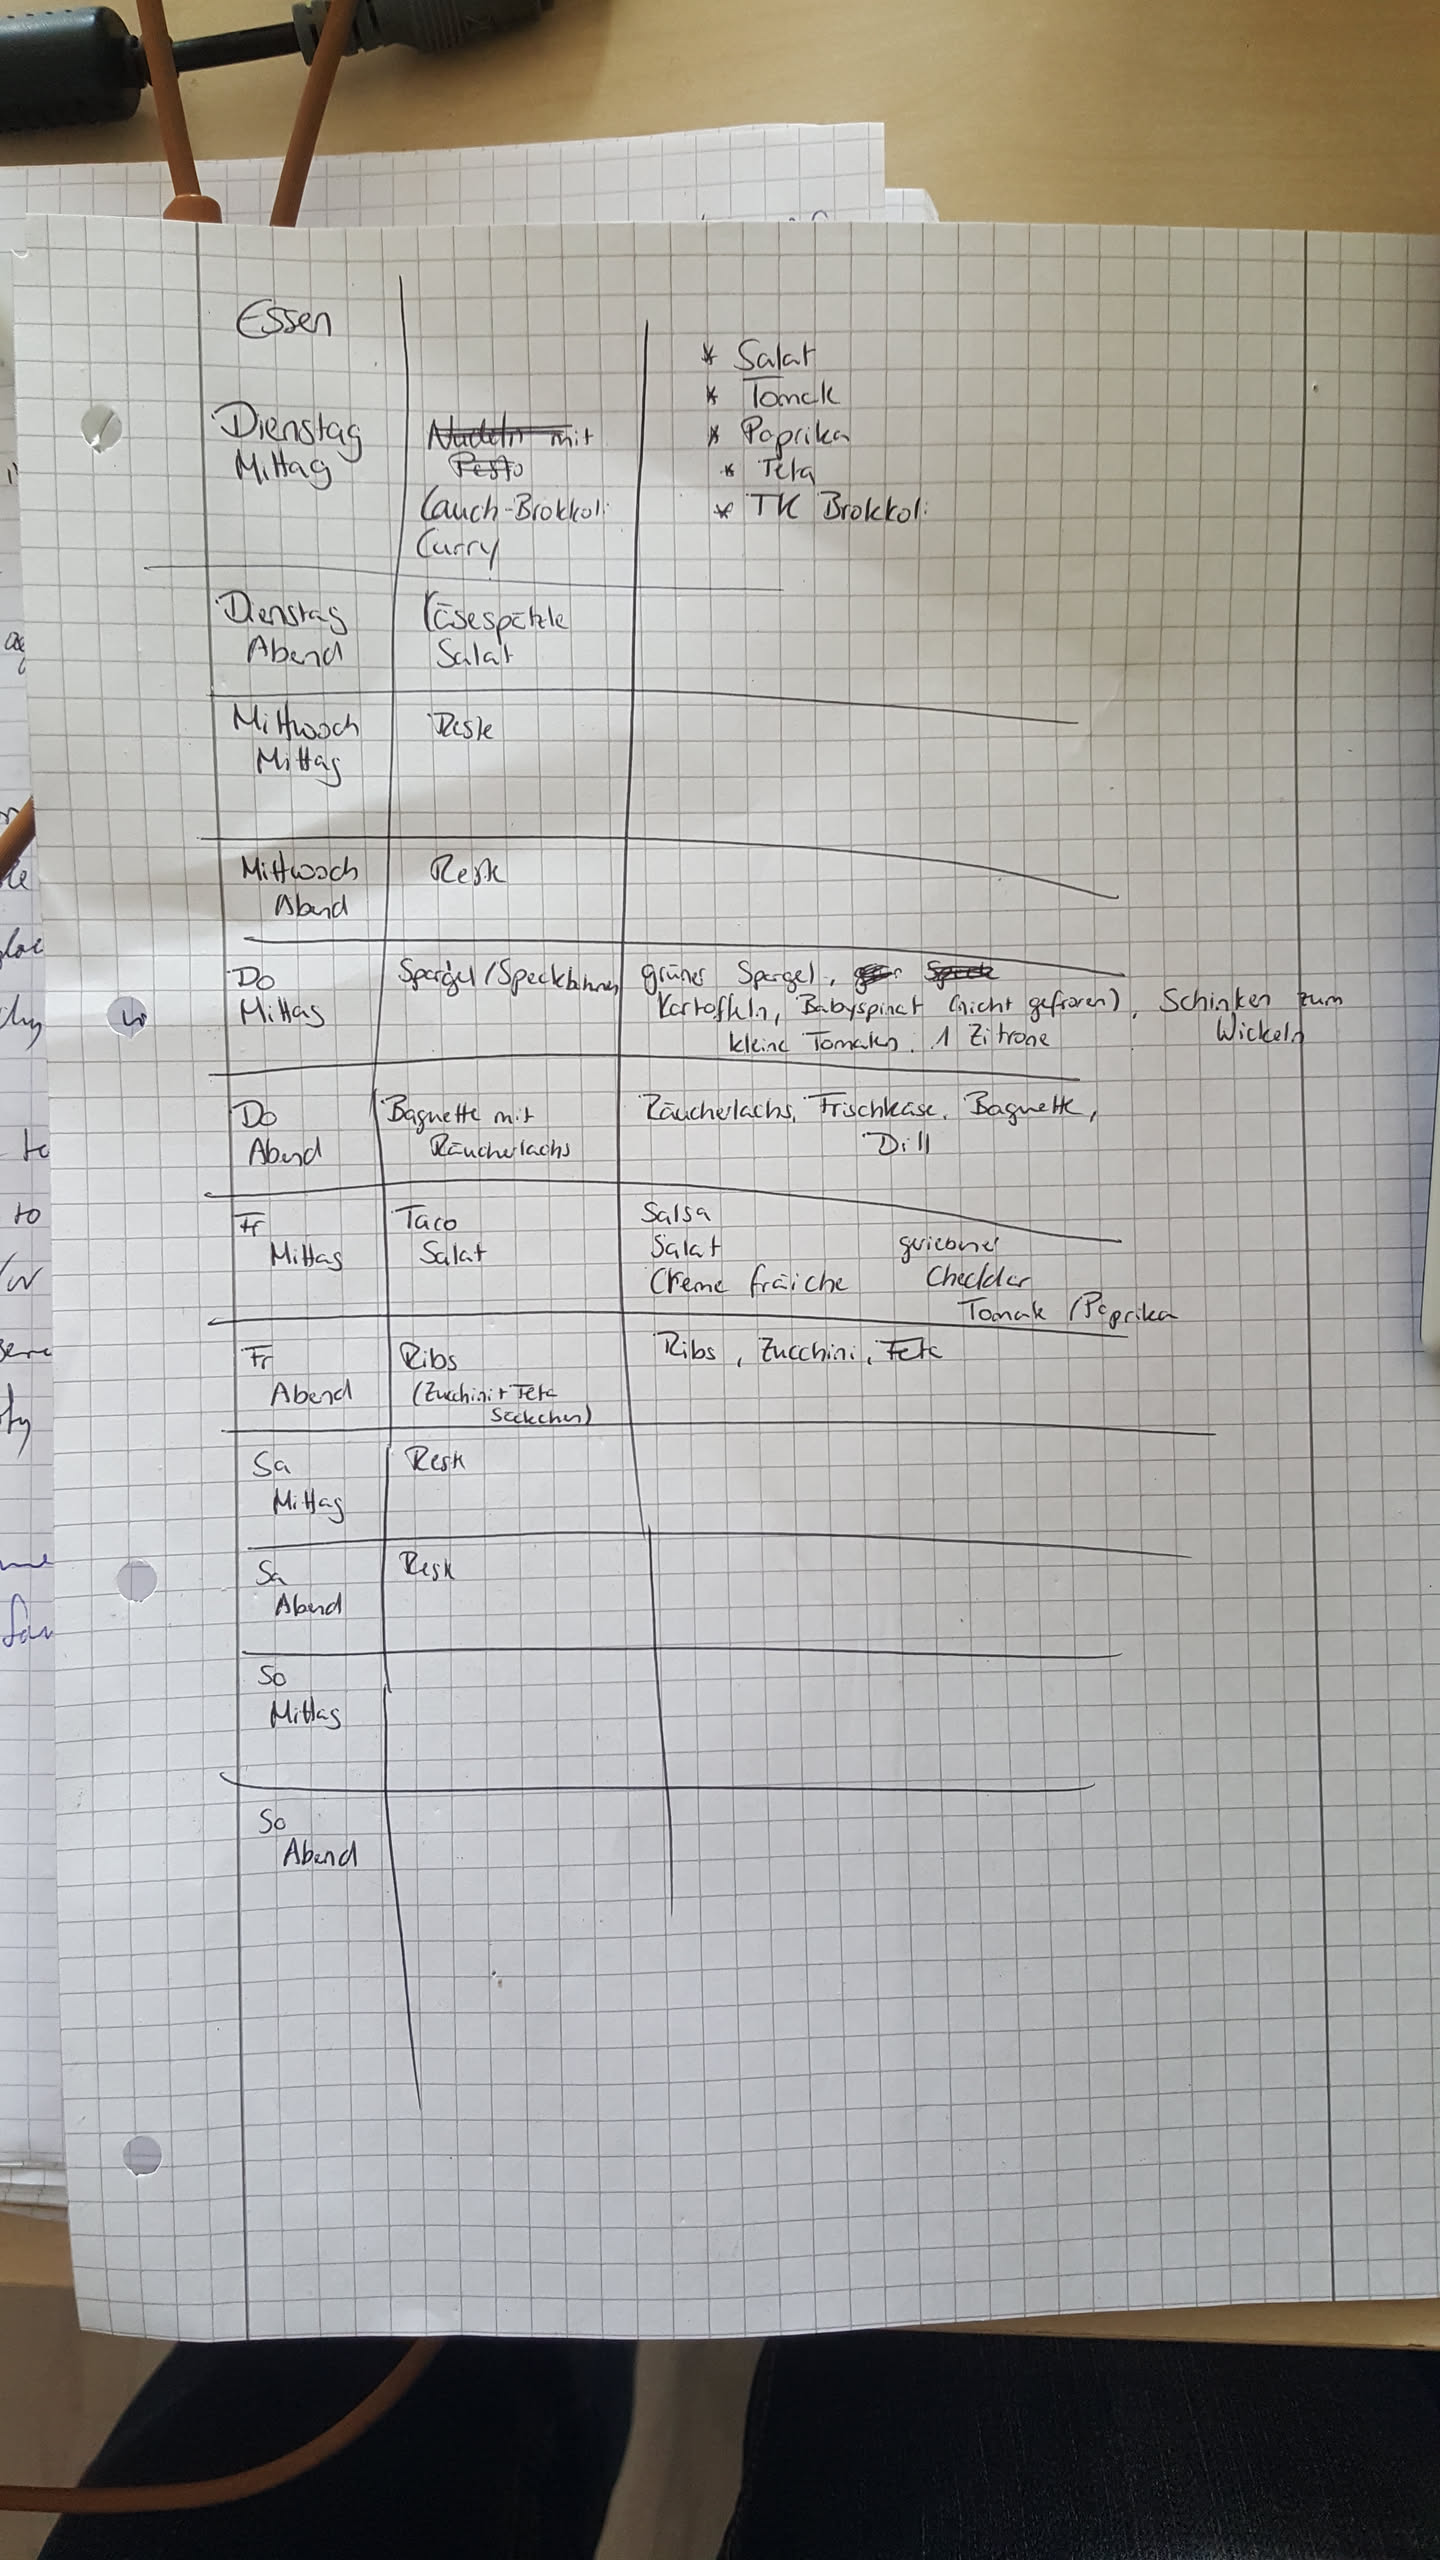 Essen
* Salat
* Tomate
* Paprika
* Feta
* TK Brokkoli
Dienstag
Mittag
Nudeln mit
Pesto
Lauch-Brokkoli
Curry
Dienstag
Abend
Käsespätzle
Salat
Mittwoch
Mittag
Reste
Mittwoch
Abend
Reste
Do
Mittag
Spargel/Speckbohnen
grüner Spargel,
Kartoffeln, Babyspinat (nicht gefroren), Schinken zum
Wickeln
kleine Tomaten, 1 Zitrone
Do
Abend
Baguette mit
Räucherlachs
Räucherlachs, Frischkäse, Baguette,
Dill
Fr
Mittag
Taco
Salat
Salsa
Salat
Creme fraiche
geriebener
Cheddar
Tomate/Paprika
Fr
Abend
Ribs
(Zucchini+Feta
Säckchen)
Ribs, Zucchini, Feta
Sa
Mittag
Reste
Sa
Abend
Reste
So
Mittag
So
Abend